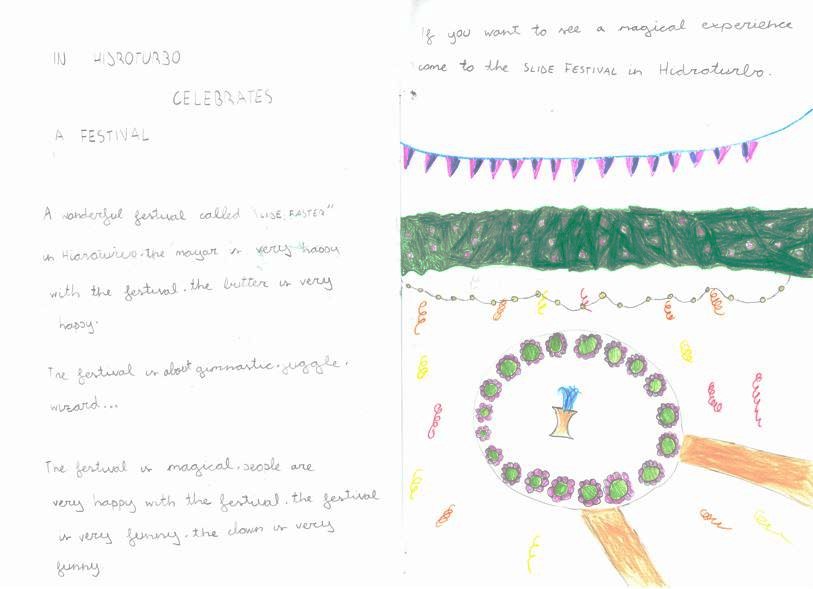 IN HIDROTURBO
CELEBRATES
A FESTIVAL
A wonderful festival called "
in the mayor is very happy
with the festival. the butter is very
happy.
The festival is about gimnastic. juggle.
wizard...
The festival is magical. people are
very happy with the festival. the festival
is very funny. the clown is very
funny
If you want to see a magical experience
come to the SLIDE FESTIVAL in Hidroturbo.